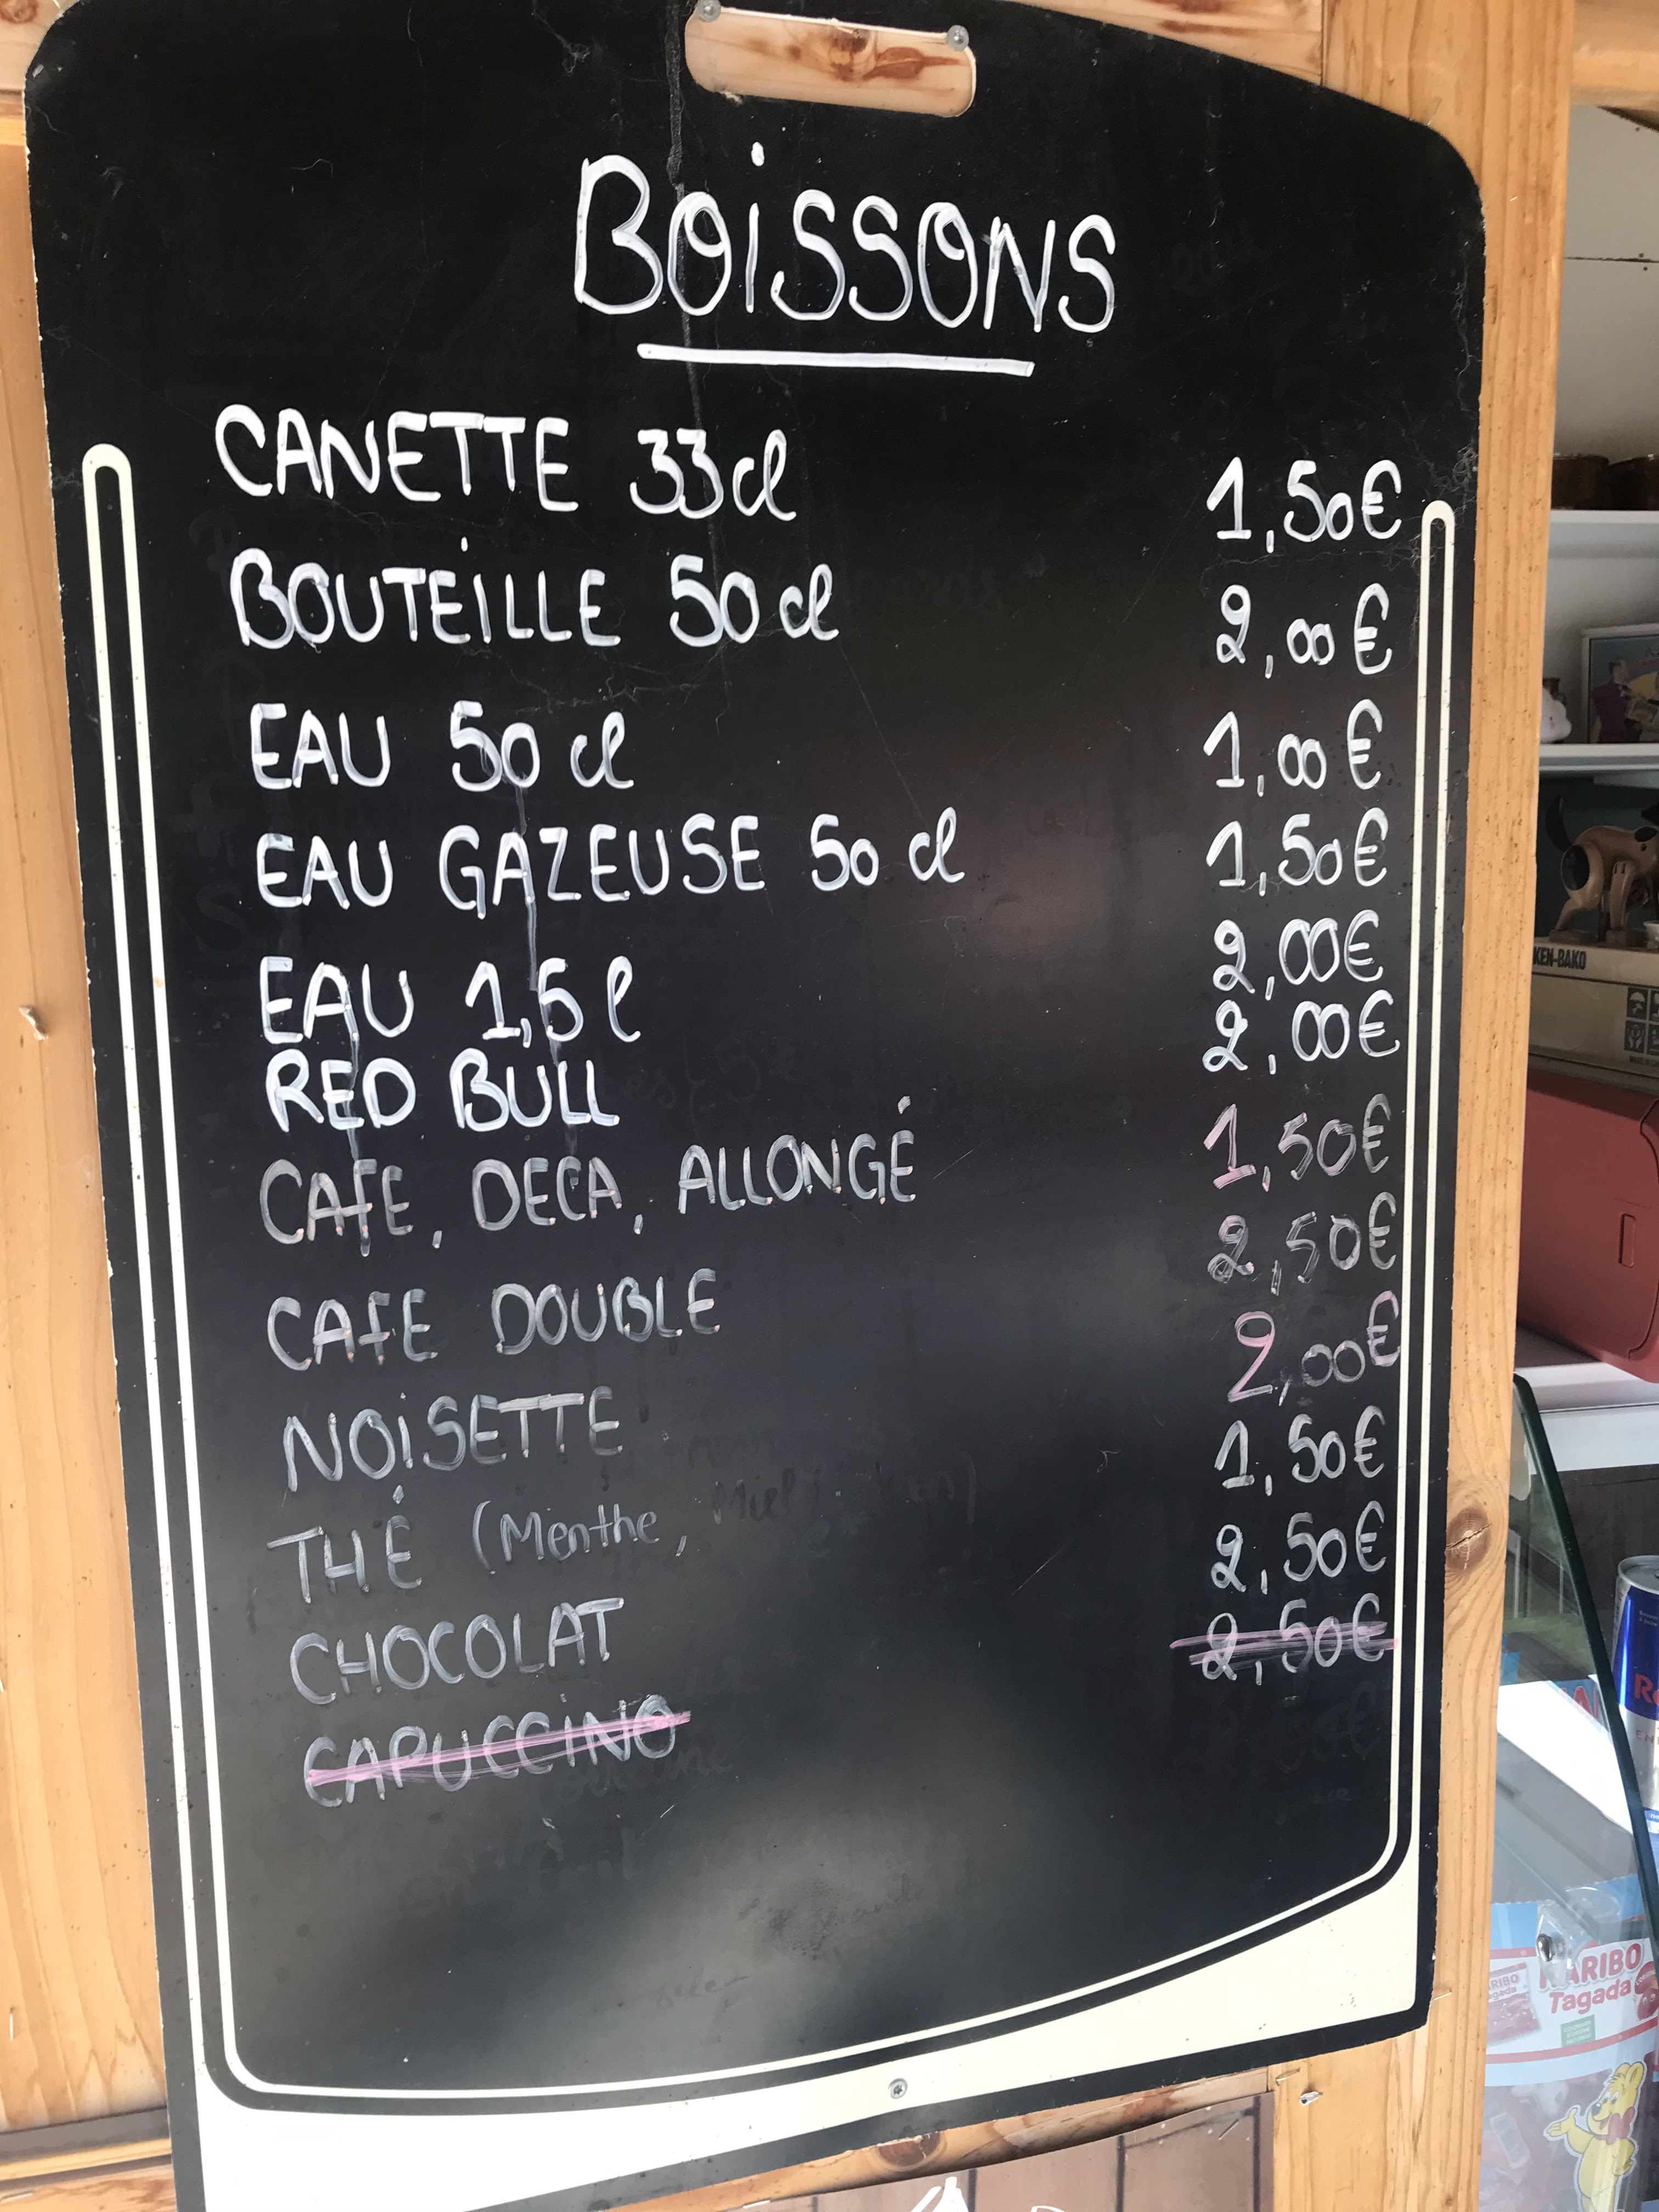 BOISSONS
CANETTE 33cl 1,50€
BOUTEILLE 50cl 2,00€
EAU 50cl 1,00€
EAU GAZEUSE 50cl 1,50€
EAU 1,5l 2,00€
RED BULL 2,00€
CAFE, DECA, ALLONGÉ 1,50€
CAFE DOUBLE 2,50€
NOISETTE 2,00€
THÉ (Menthe, Miel 1,50€
CHOCOLAT 2,50€
CAPUCCINO 2,50€
KEN-BAKO
HARIBO
Tagada